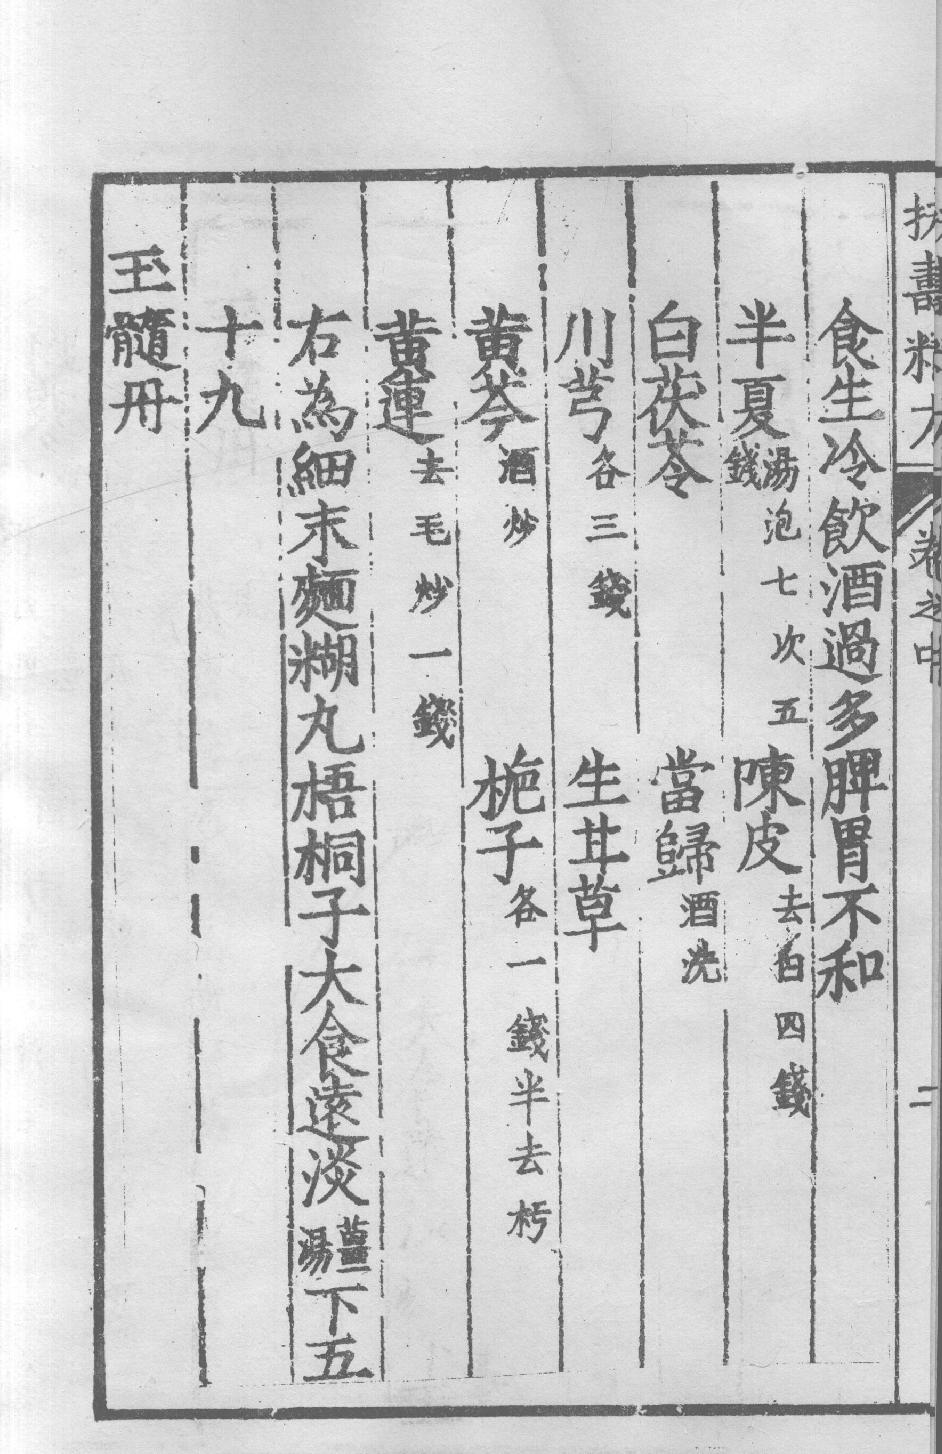 扶壽精方 卷之中 二
食生冷飲酒過多脾胃不和
半夏湯泡七次五錢 陳皮去白四錢
白茯苓 當歸酒洗
川芎各三錢 生甘草
黄芩酒炒 梔子各一錢半去朽
黄連去毛炒一錢
右為細末麵糊丸梧桐子大食遠淡薑湯下五
十丸
玉髓丹